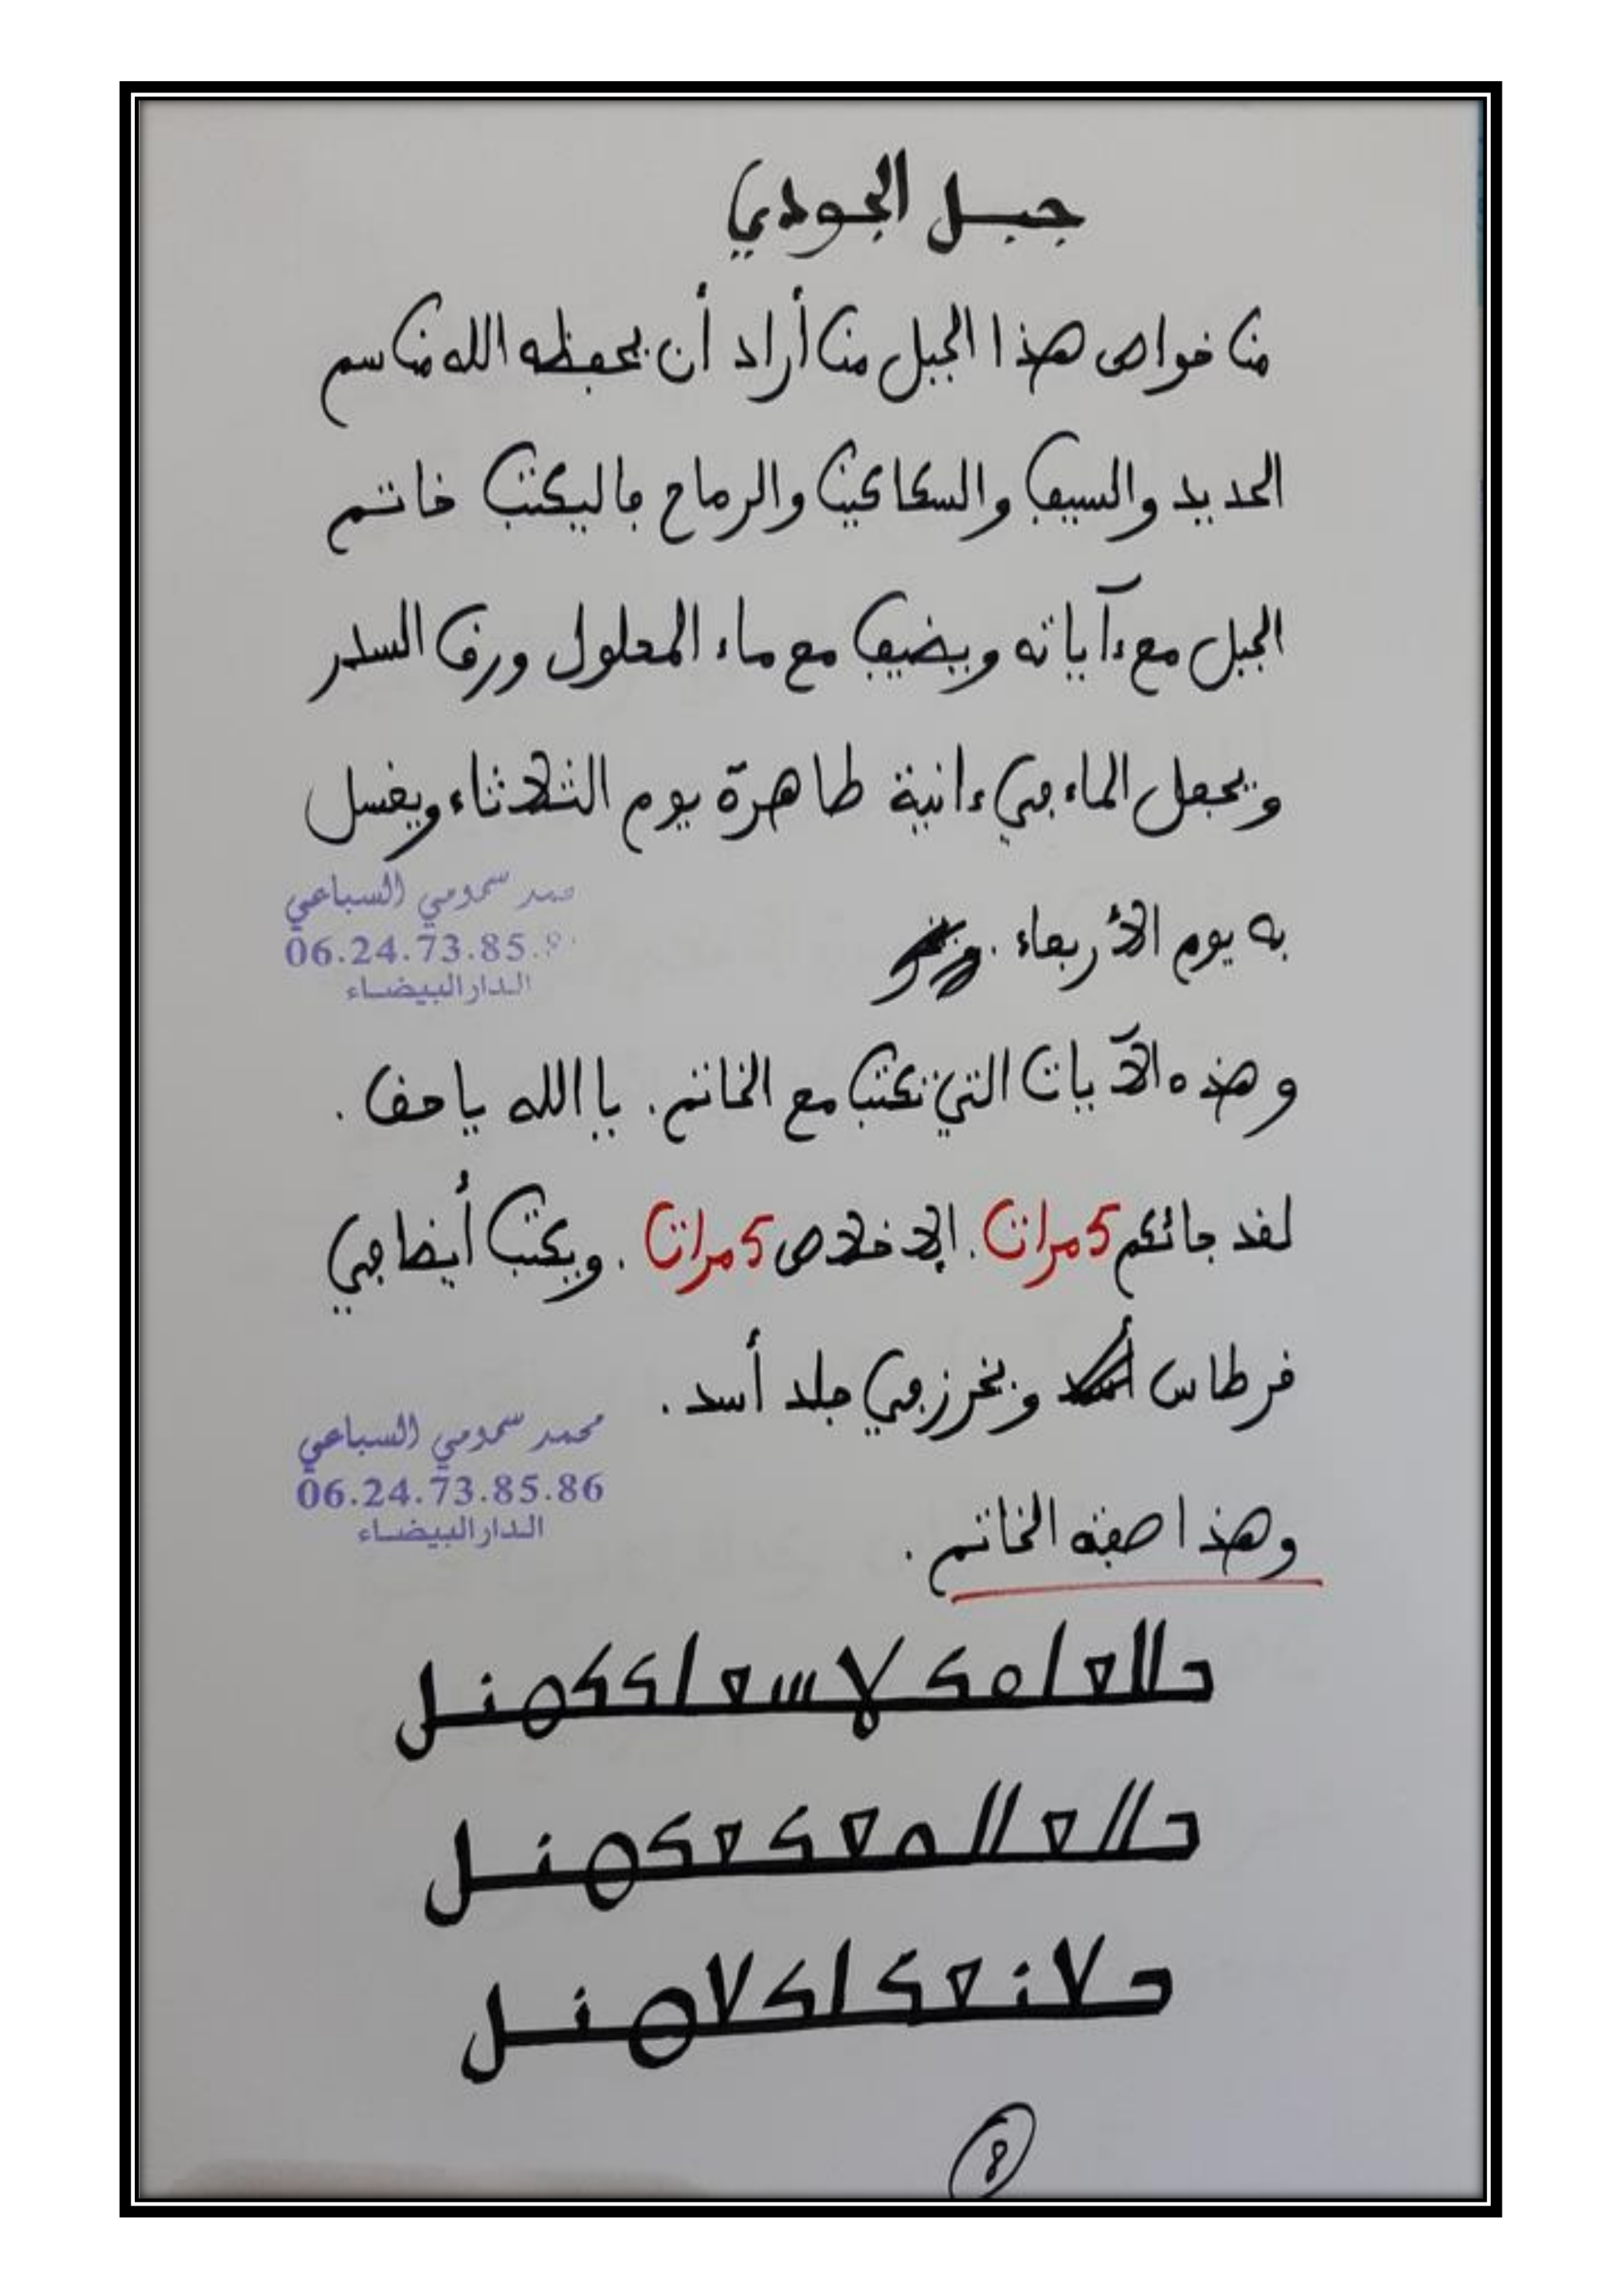 جبل الجودي
من خواص هذا الجبل من أراد أن يحفظه الله من سم
الحديد والسيف والسكاكين والرماح فاليكتب خاتم
الجبل مع ءآياته ويضيف مع ماء المحلول ورق السدر
ويجعل الماء في ءانية طاهرة يوم الثلاثاء ويغسل
به يوم الأربعاء .
محمد سمومي السباعي
06.24.73.85.
الدار البيضاء
وهذه الآيات التي تكتب مع الخاتم . يا الله يا حق .
لقد جائكم 5 مرات . الإخلاص 5 مرات . ويكتب أيضا في
قرطاس ويخرز في جلد أسد .
محمد سمومي السباعي
06.24.73.85.86
الدار البيضاء
وهذا صفته الخاتم .
8